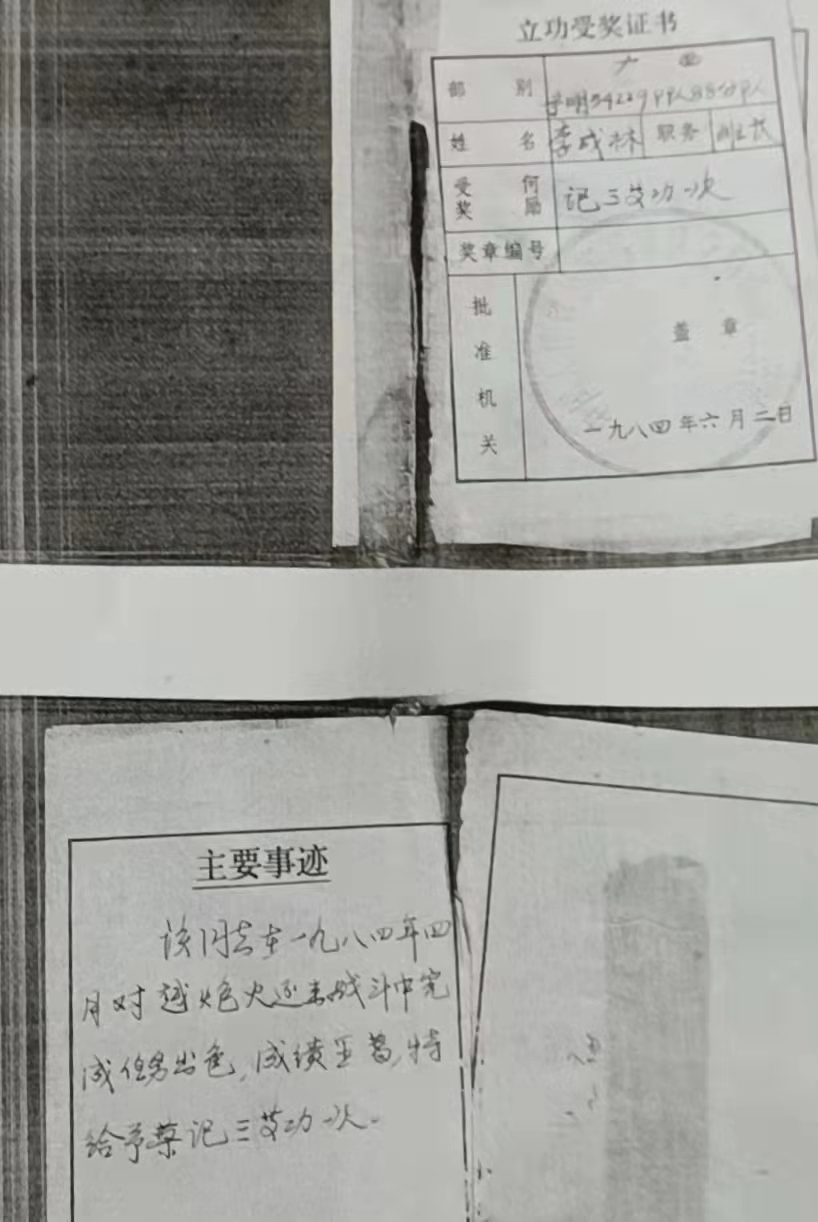 立功受奖证书
部别 广西
宁明54229部队88分队
姓名 李成林 职务 班长
受何奖励 记三等功一次
奖章编号
批准机关
盖章
一九八四年六月二日
主要事迹
该同志在一九八四年四
月对越炮火还击战斗中完
成任务出色,成绩显著,特
给予荣记三等功一次.